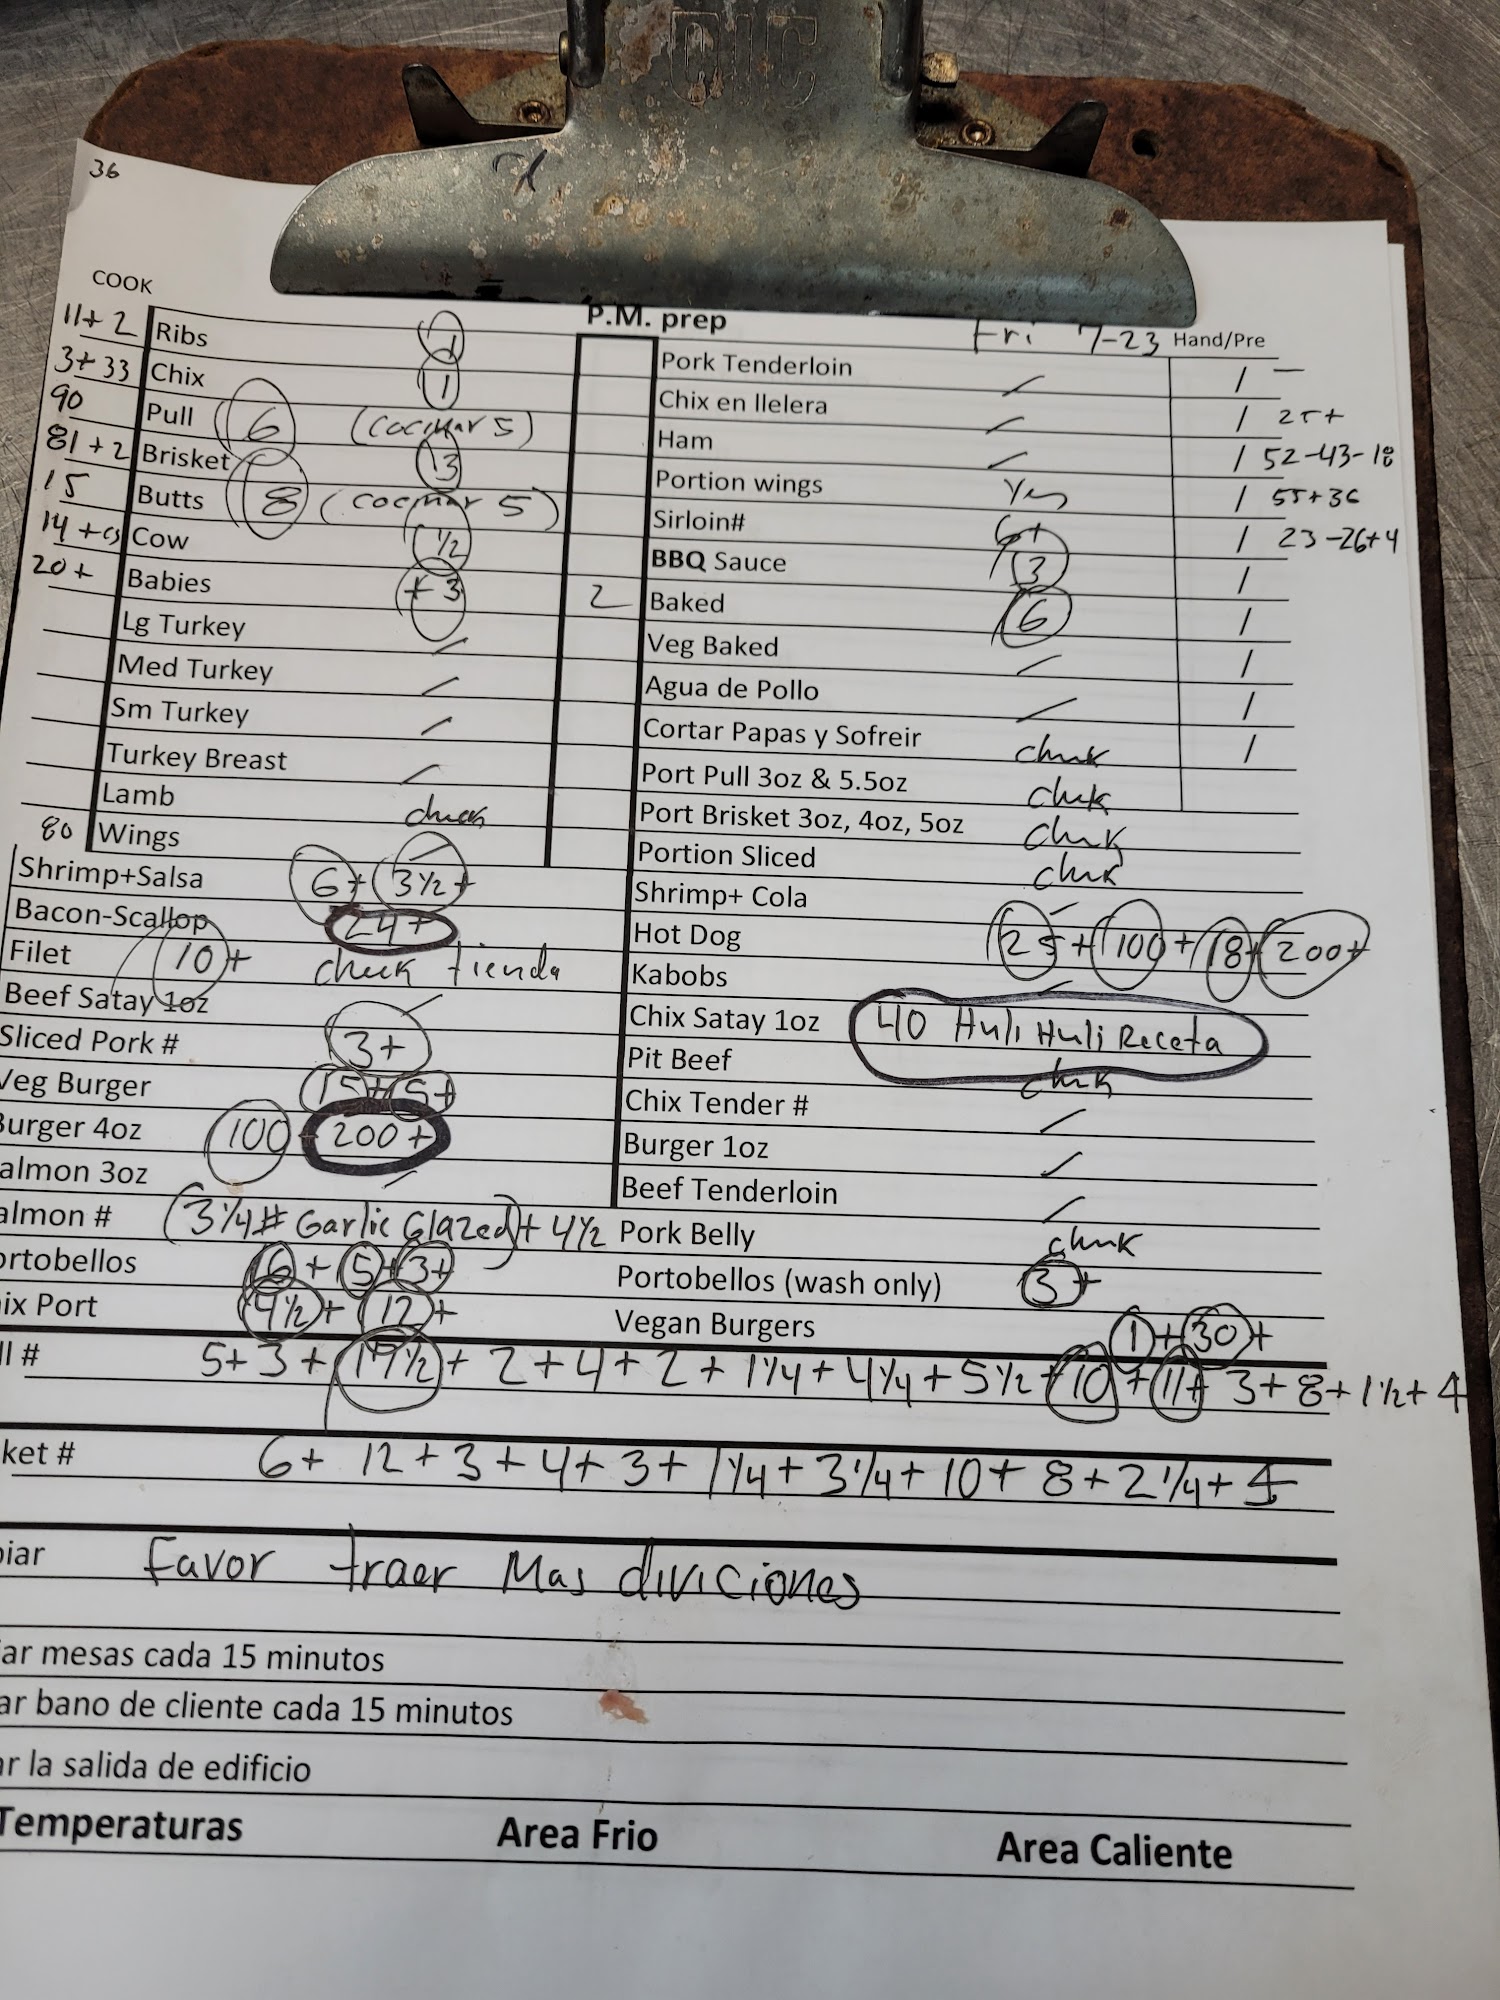 36
COOK
P.M. prep Fri 7-23 Hand/Pre
11+ 2 Ribs
3+ 33 Chix 1
90 Pull 6 (cocinar 5)
81 + 2 Brisket 13
15 Butts 8 (cocinar 5)
14 + Cow 1/2
20+ Babies + 3
Lg Turkey
Med Turkey
Sm Turkey
Turkey Breast
Lamb check
80 Wings
Shrimp+Salsa 6+ 3½+
Bacon-Scallop 24+
Filet 10+ check tienda
Beef Satay 1oz
Sliced Pork # 3+
Veg Burger 15+ 5+
Burger 4oz 100 200+
almon 3oz
almon # (3¼# Garlic Glazed) + 4½
ortobellos 6 + 5 + 3+
ix Port 4½ + 12 +
Pork Tenderloin / —
Chix en llelera / 25+
Ham / 52-43-18
Portion wings Yes / 55+36
Sirloin# 6+ / 23-26+4
BBQ Sauce 3 /
2 Baked 6 /
Veg Baked /
Agua de Pollo /
Cortar Papas y Sofreir chek /
Port Pull 3oz & 5.5oz chek
Port Brisket 3oz, 4oz, 5oz chek
Portion Sliced chek
Shrimp+ Cola
Hot Dog 25+ 100+ 18+ 200+
Kabobs
Chix Satay 1oz 40 Huli Huli Receta
Pit Beef chek
Chix Tender #
Burger 1oz
Beef Tenderloin
Pork Belly chek
Portobellos (wash only) 3+
Vegan Burgers 1+ 30+
ll # 5+ 3 + 19½ + 2 + 4 + 2 + 1¼ + 4¼ + 5½ + 10 + 11+ 3+ 8+ 1½+ 4
ket # 6+ 12 + 3 + 4+ 3+ 1¼ + 3¼ + 10 + 8 + 2¼ +
piar Favor traer Mas diviciones
iar mesas cada 15 minutos
ar bano de cliente cada 15 minutos
ar la salida de edificio
Temperaturas Area Frio Area Caliente